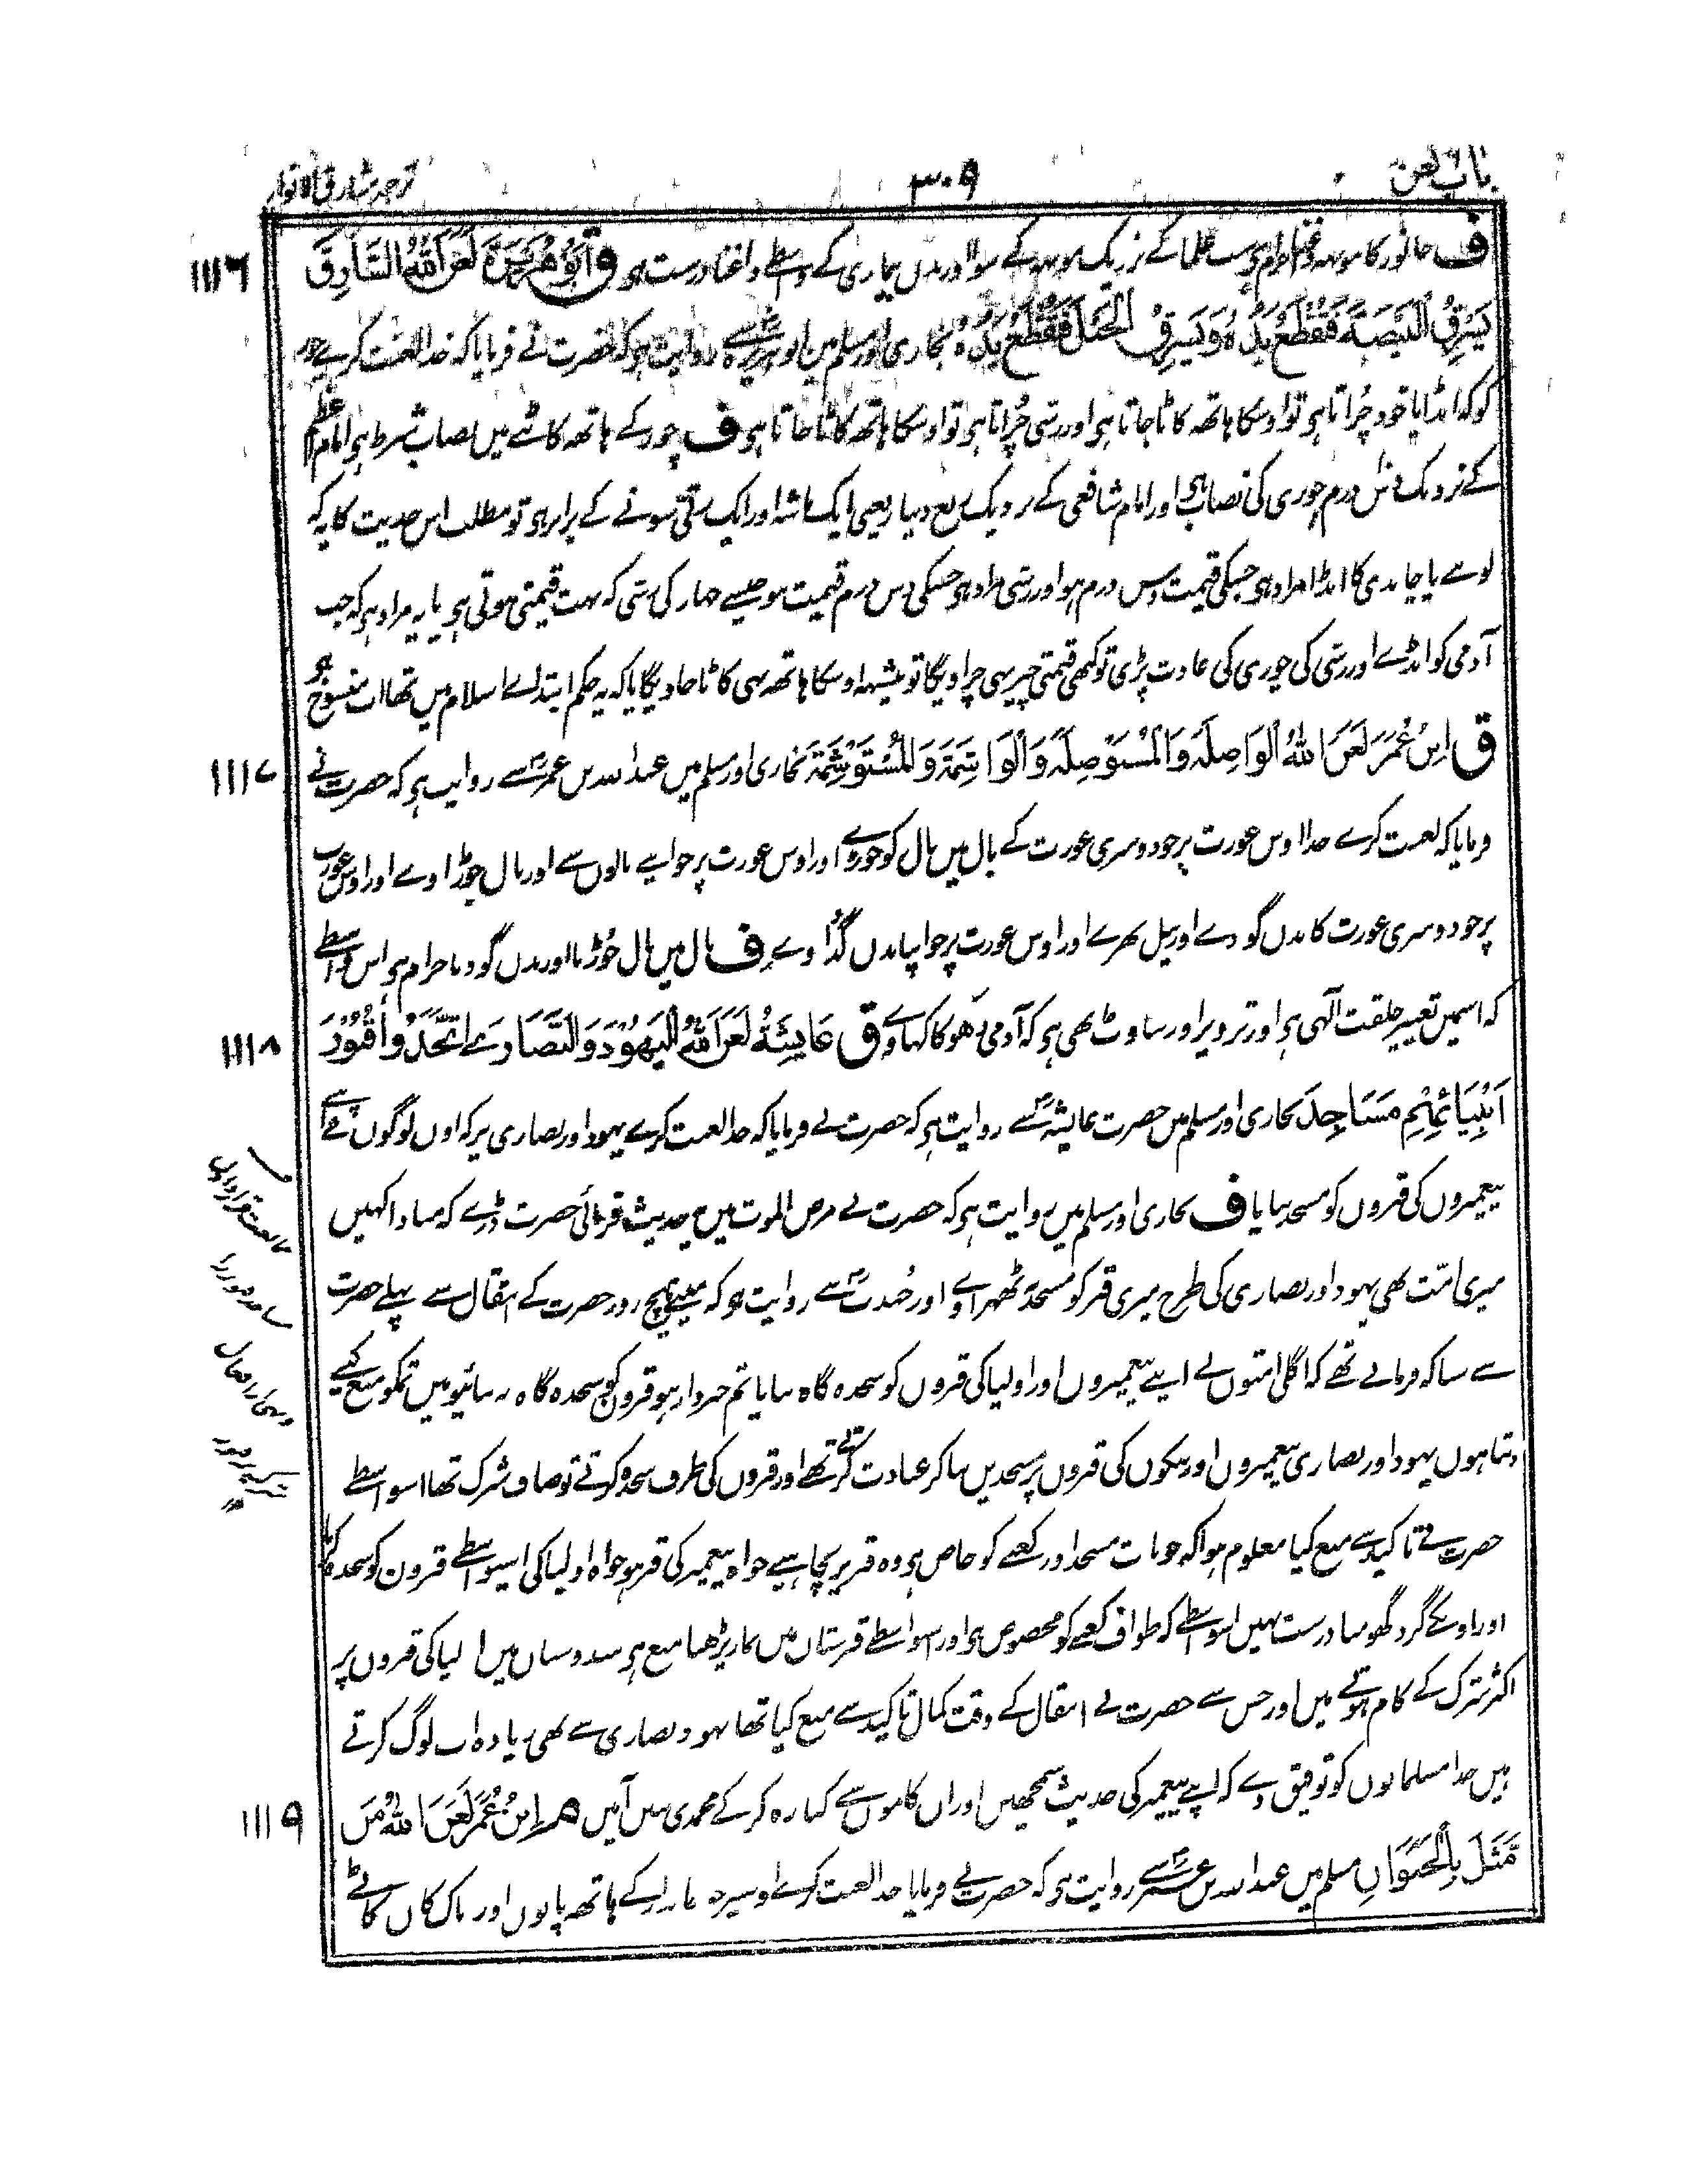 باب لعن
۳۰۹
ترجمہ مشارق الانوار
ف جانور کا مونہہ داغنا حرام ہے سب علما کے نزدیک مونہہ کے سوا اور بدن بیماری کے واسطے داغنا درست ہو ق اَبُوْ هُرَيْرَةَ لَعَنَ اللّٰهُ السَّارِقَ
۱۱۱۶
يَسْرِقُ الْبَيْضَةَ فَتُقْطَعُ يَدُهٗ وَيَسْرِقُ الْحَبْلَ فَتُقْطَعُ يَدُهٗ بخاری اور مسلم میں ابو ہریرہ سے روایت ہے کہ حضرت نے فرمایا کہ خدا لعنت کرے چور
کو کہ انڈا یا خود چُراتا ہو تو اوسکا ہاتھ کاٹا جاتا ہو اور رسّی چُراتا ہو تو اوسکا ہاتھ کاٹا جاتا ہو ف چور کے ہاتھ کاٹنے میں نصاب شرط ہو امام اعظم
کے نزدیک دس درم چوری کی نصاب ہو اور امام شافعی کے نزدیک ربع دینار یعنی ایک ماشہ اور ایک رتّی سونے کے برابر ہو تو مطلب اس حدیث کا یہ کہ
لوہے یا چاندی کا انڈا مراد ہو جسکی قیمت دس درم ہو اور رسّی مراد ہو جسکی دس درم قیمت ہو جیسے جہاز کی رسّی کہ بہت قیمتی ہوتی ہو یا یہ مراد ہو کہ جب
آدمی کو انڈے اور رسّی کی چوری کی عادت پڑی تو کبھی قیمتی چیز بھی چراویگا تو ہمیشہ اوسکا ہاتھ بھی کاٹا جاویگا یا کہ یہ حکم ابتداے اسلام میں تھا اب منسوخ ہو
ق اِبْنُ عُمَرَ لَعَنَ اللّٰهُ الْوَاصِلَةَ وَالْمُسْتَوْصِلَةَ وَالْوَاشِمَةَ وَالْمُسْتَوْشِمَةَ بخاری اور مسلم میں عبد اللہ بن عمرؓ سے روایت ہو کہ حضرت نے
۱۱۱۷
فرمایا کہ لعنت کرے خدا اوس عورت پر جو دوسری عورت کے بال میں بال کو جوڑے اور اوس عورت پر جو اپنے بالوں سے اور بال جوڑاوے اور اوس عورت
پر جو دوسری عورت کا بدن گودے اور نیل بھرے اور اوس عورت پر جو اپنا بدن گُداوے ف بال میں بال جوڑنا اور بدن گودنا حرام ہو اس واسطے
کہ اسمیں تغییر خلقت آلہی ہو اور تزویر اور بناوٹ بھی ہو کہ آدمی دھوکا کھاوے ق عَايِشَةُ لَعَنَ اللّٰهُ الْيَهُوْدَ وَالنَّصَارٰى اِتَّخَذُوْا قُبُوْرَ
۱۱۱۸
اَنْبِيَائِهِمْ مَسَاجِدَ بخاری اور مسلم میں حضرت عایشہؓ سے روایت ہو کہ حضرت نے فرمایا کہ خدا لعنت کرے یہود اور نصاری پر کہ اون لوگوں نے اپنے
پیغمبروں کی قبروں کو مسجد بنایا ف بخاری اور مسلم میں روایت ہو کہ حضرت نے مرض الموت میں یہ حدیث فرمائی حضرت ڈرے کہ مبادا کہیں
میری امّت بھی یہود اور نصاری کی طرح میری قبر کو مسجد ٹھہراوے اور جُندبؓ سے روایت ہو کہ مینے پانچ روز حضرت کے انتقال سے پہلے حضرت
سے سنا کہ فرماتے تھے کہ اگلی امتوں نے اپنے پیغمبروں اور اولیا کی قبروں کو سجدہ گاہ بنایا تم خبردار ہو قبروں کو سجدہ گاہ نہ بنائیو میں تمکو منع کیے
دیتا ہوں یہود اور نصاری پیغمبروں اور نیکوں کی قبروں پر مسجدیں بنا کر عبادت کرتے تھے اور قبروں کی طرف سجدہ کرتے تو صاف شرک تھا اسواسطے
حضرت نے تاکید سے منع کیا معلوم ہوا کہ جو بات مسجد اور کعبے کو خاص ہو وہ قبر پر نچاہیے خواہ پیغمبر کی قبر ہو خواہ اولیا کی اسیواسطے قبروں کو سجدہ کرنا
اور اونکے گرد گھومنا درست نہیں اسواسطے کہ طواف کعبے کو مخصوص ہو اور اسواسطے قبرستان میں نماز پڑھنا منع ہو ہندوستان میں اولیا کی قبروں پر
اکثر شرک کے کام ہوتے ہیں اور جس سے حضرت نے انتقال کے وقت کمال تاکید سے منع کیا تھا یہود و نصاری سے بھی زیادہ اب لوگ کرتے
ہیں خدا مسلمانوں کو توفیق دے کہ اپنے پیغمبر کی حدیث سمجھیں اور ان کاموں سے کنارہ کر کے محمدی بنیں آمین م اِبْنُ عُمَرَ لَعَنَ اللّٰهُ مَنْ
۱۱۱۹
مَثَّلَ بِالْحَيَوَانِ مسلم میں عبد اللہ بن عمرؓ سے روایت ہو کہ حضرت نے فرمایا خدا لعنت کرے اوسپر جو جاندار کے ہاتھ پانوں اور ناک کان کاٹے